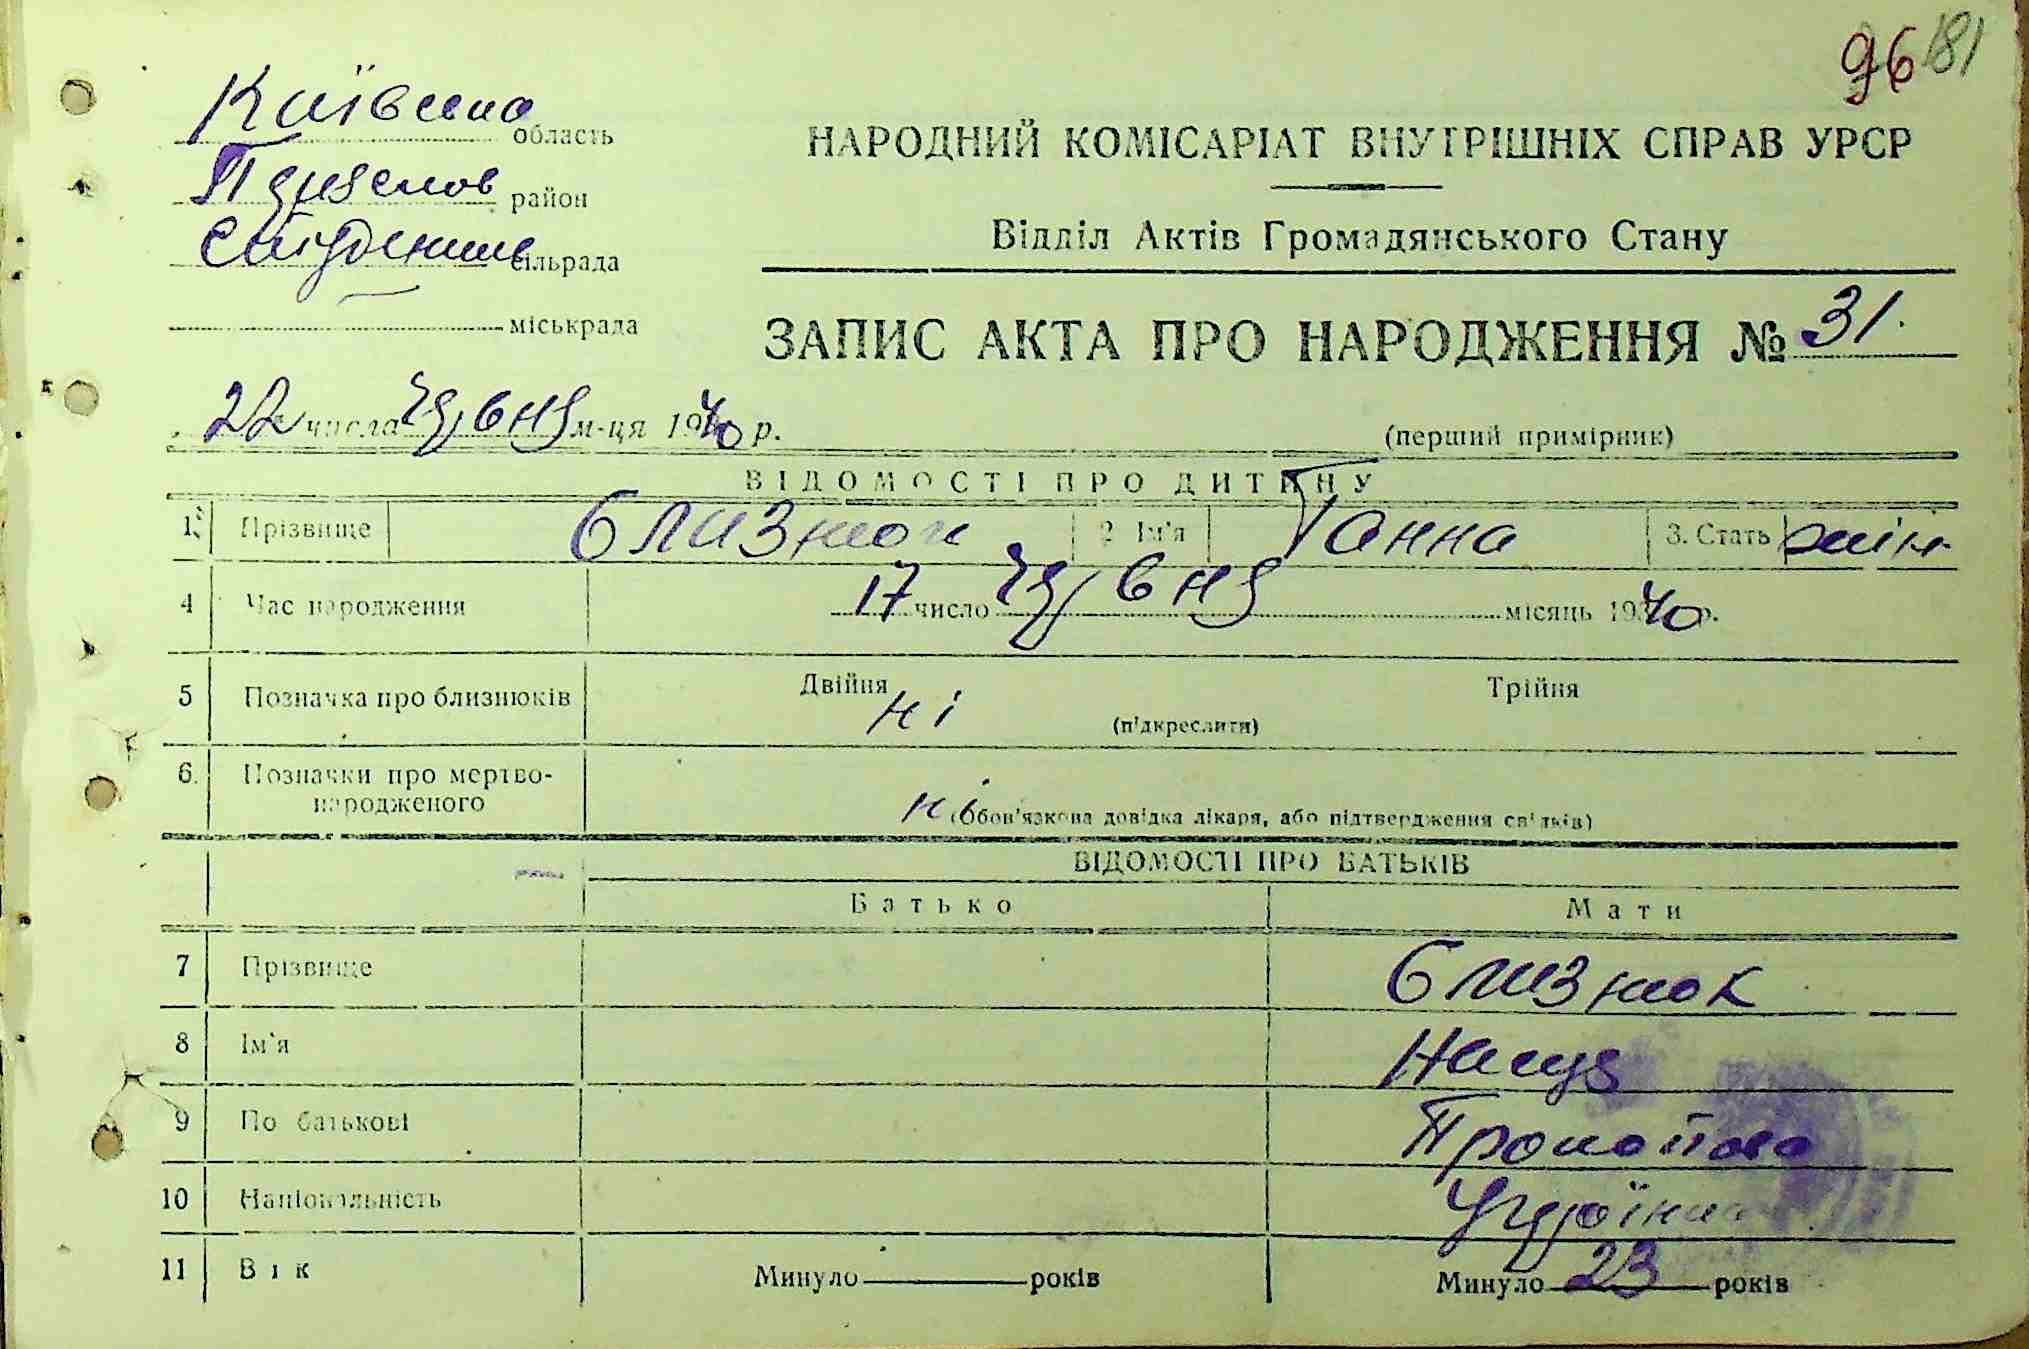 96 181
Київська область
район
Студеників сільрада
міськрада
НАРОДНИЙ КОМІСАРІАТ ВНУТРІШНІХ СПРАВ УРСР
Відділ Актів Громадянського Стану
ЗАПИС АКТА ПРО НАРОДЖЕННЯ № 31.
22 числа червня м-ця 1940 р.
(перший примірник)
ВІДОМОСТІ ПРО ДИТИНУ
1. Прізвище Близнюк 2. Ім'я Ганна 3. Стать жін.
4 Час народження 17 число червня місяць 1940 р.
5 Позначка про близнюків Двійня ні (підкреслити) Трійня
6. Позначки про мертво-
народженого ні (Обов'язкова довідка лікаря, або підтвердження свідків)
ВІДОМОСТІ ПРО БАТЬКІВ
Батько Мати
7 Прізвище Близнюк
8 Ім'я Настя
9 По батькові
10 Національність Україн
11 Вік Минуло років Минуло 23 років